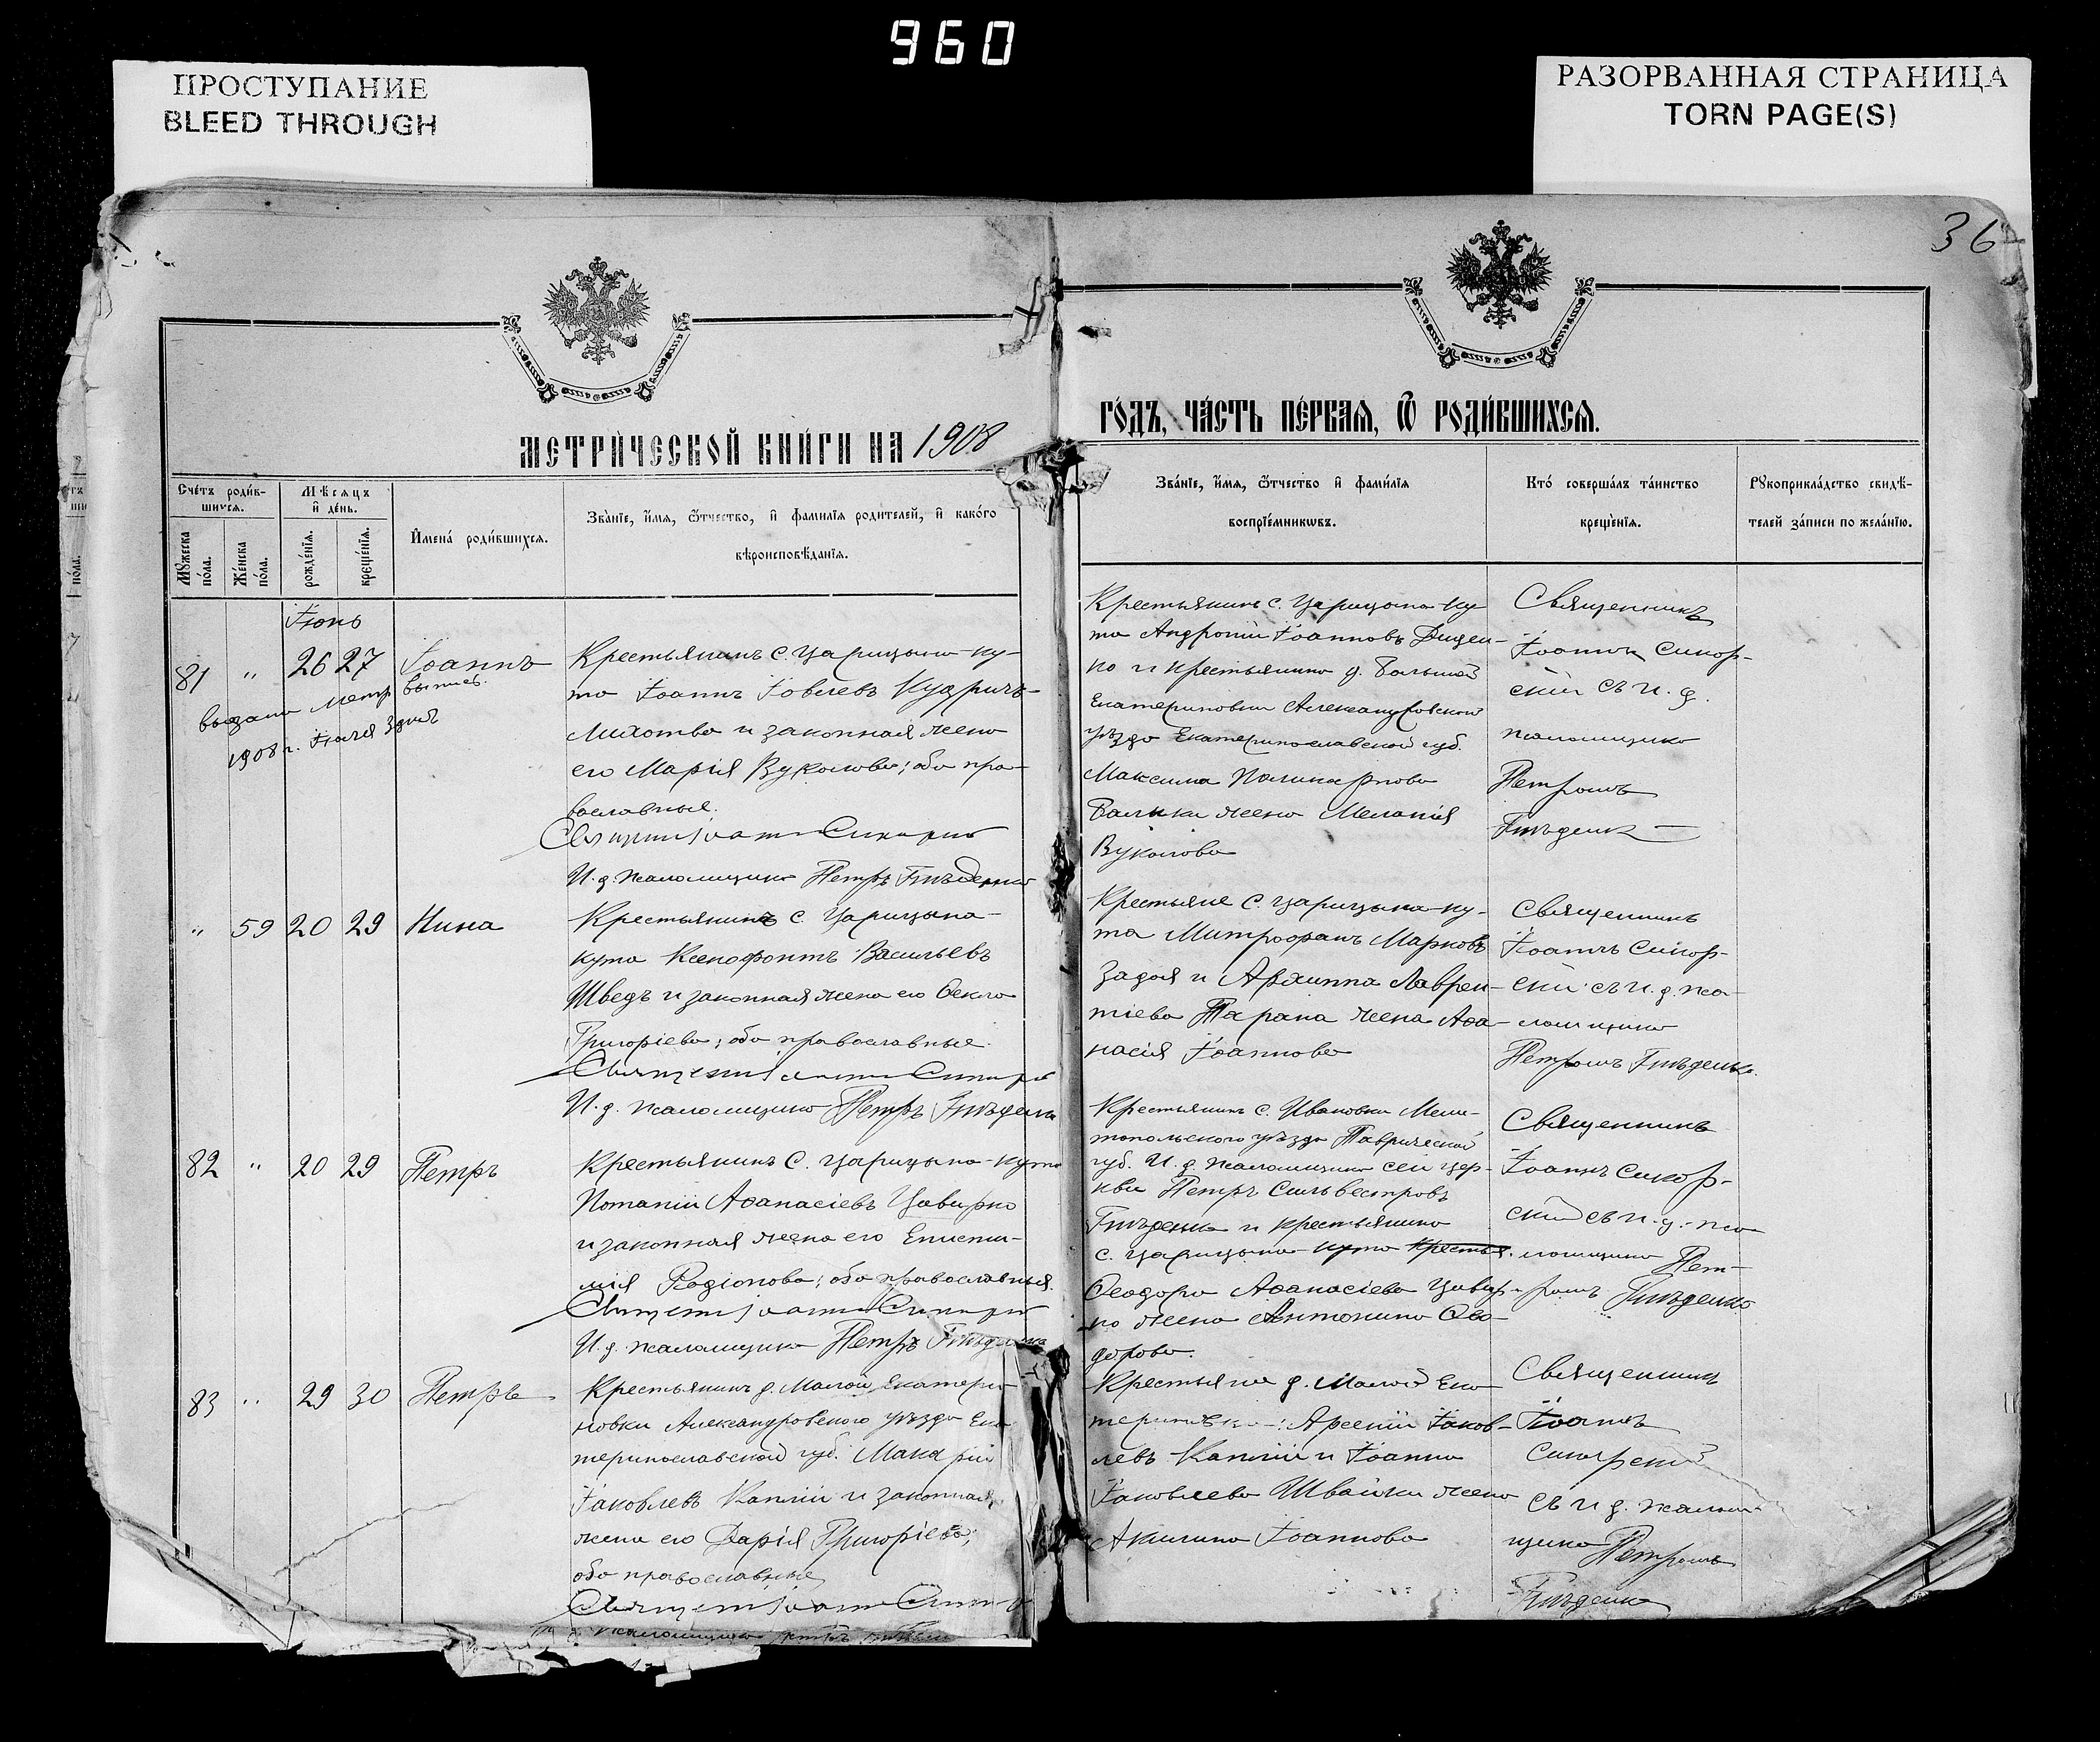 960
ПРОСТУПАНИЕ
BLEED THROUGH
РАЗОРВАННАЯ СТРАНИЦА
TORN PAGE(S)
36
МЕТРИ́ЧЕСКОЙ КНИ́ГИ НА 1908
ГО́ДЪ, ЧА́СТЬ ПЕ́РВАЯ, Ѿ РОДИ́ВШИХСЯ.
Сче́тъ роди́в-
шихся.
Мѣ́сяцъ
и҆ де́нь.
Мꙋ́жеска
по́ла.
Же́нска
по́ла.
рожде́нїѧ.
креще́нїѧ.
И҆мена̀ роди́вшихся.
Зва́нїе, и҆́мя, ѻ҆́тчество, и҆ фами́лїя роди́телей, и҆ како́гѡ
вѣроисповѣ́данїя.
Зва́нїе, и҆́мя, ѻ҆́тчество и҆ фами́лїя
воспрїе́мникѡвъ.
Кто̀ соверша́лъ та́инство
креще́нїя.
Рꙋкоприкла́дство свидѣ́-
телей за́писи по жела́нїю.
Іюнь
81 " 26 27 Іоаннъ
выдана метр. выпись.
1908 г. Іюля 3 дня
Крестьянинъ с. Царицына-ку-
та Іоаннъ Іовлевъ
и законная жена
его Марія Вуколова; оба пра-
вославные.
Священ Іоаннъ Сикорскій
И. д. псаломщика Петръ Гнѣденко
Крестьянинъ с. Царицына-ку-
та Андроній Іоанновъ Дицен-
ко и крестьянина д. Большой
Екатериновки Александровскаго
уѣзда Екатеринославской губ.
Максима Поликарпова
жена Меланія
Вуколова
Священникъ
Іоаннъ Сикор-
скій съ и. д.
псаломщика
Петромъ
Гнѣденко
" 59 20 29 Нина
Крестьянинъ с. Царицына-
кута Ксенофонтъ Васильевъ
Шведъ и законная жена его Ѳекла
Григоріева; оба православные.
Священ Іоаннъ Сикорскій
И. д. псаломщика Петръ Гнѣденко
Крестьяне с. Царицына-ку-
та Митрофанъ Марковъ
Задоя и Архиппа Лаврен-
тіева Тарана жена Аѳа-
насія Іоаннова
Священникъ
Іоаннъ Сикор-
скій съ и. д. пса-
ломщика
Петромъ Гнѣденко.
82 " 20 29 Петръ
Крестьянинъ с. Царицына-кута
Потапій Аѳанасіевъ Цовирко
и законная жена его Еписти-
мія Родіонова; оба православные.
Священ Іоаннъ Сикорскій
И. д. псаломщика Петръ Гнѣденко
Крестьянинъ с. Ивановки Мели-
топольскаго уѣзда Таврической
губ. И. д. псаломщика сей цер-
кви Петръ Сильвестровъ
Гнѣденко и крестьянина
с. Царицына кута Крестья.
Ѳеодора Аѳанасіева Цовир-
ко жена Антонина Ѳео-
дорова.
Священникъ
Іоаннъ Сикор-
скій съ и. д. пса-
ломщика Пет-
ромъ Гнѣденко
83 " 29 30 Петръ
Крестьянинъ д. Малой Екатери-
новки Александровскаго уѣзда Ека-
теринославской губ. Макарій
Іаковлевъ Каплій и законная
жена его Дарія Григоріева;
оба православные
Священ Іоаннъ
д. псаломщика Петръ
Крестьяне д. Малой Ека-
териновки: Арсеній Іаков-
левъ Каплій и Іоанна
Іаковлева Швайки жена
Акилина Іоаннова
Священникъ
Іоаннъ
Сикорскій
съ и д. псалом-
щика Петромъ
Гнѣденко